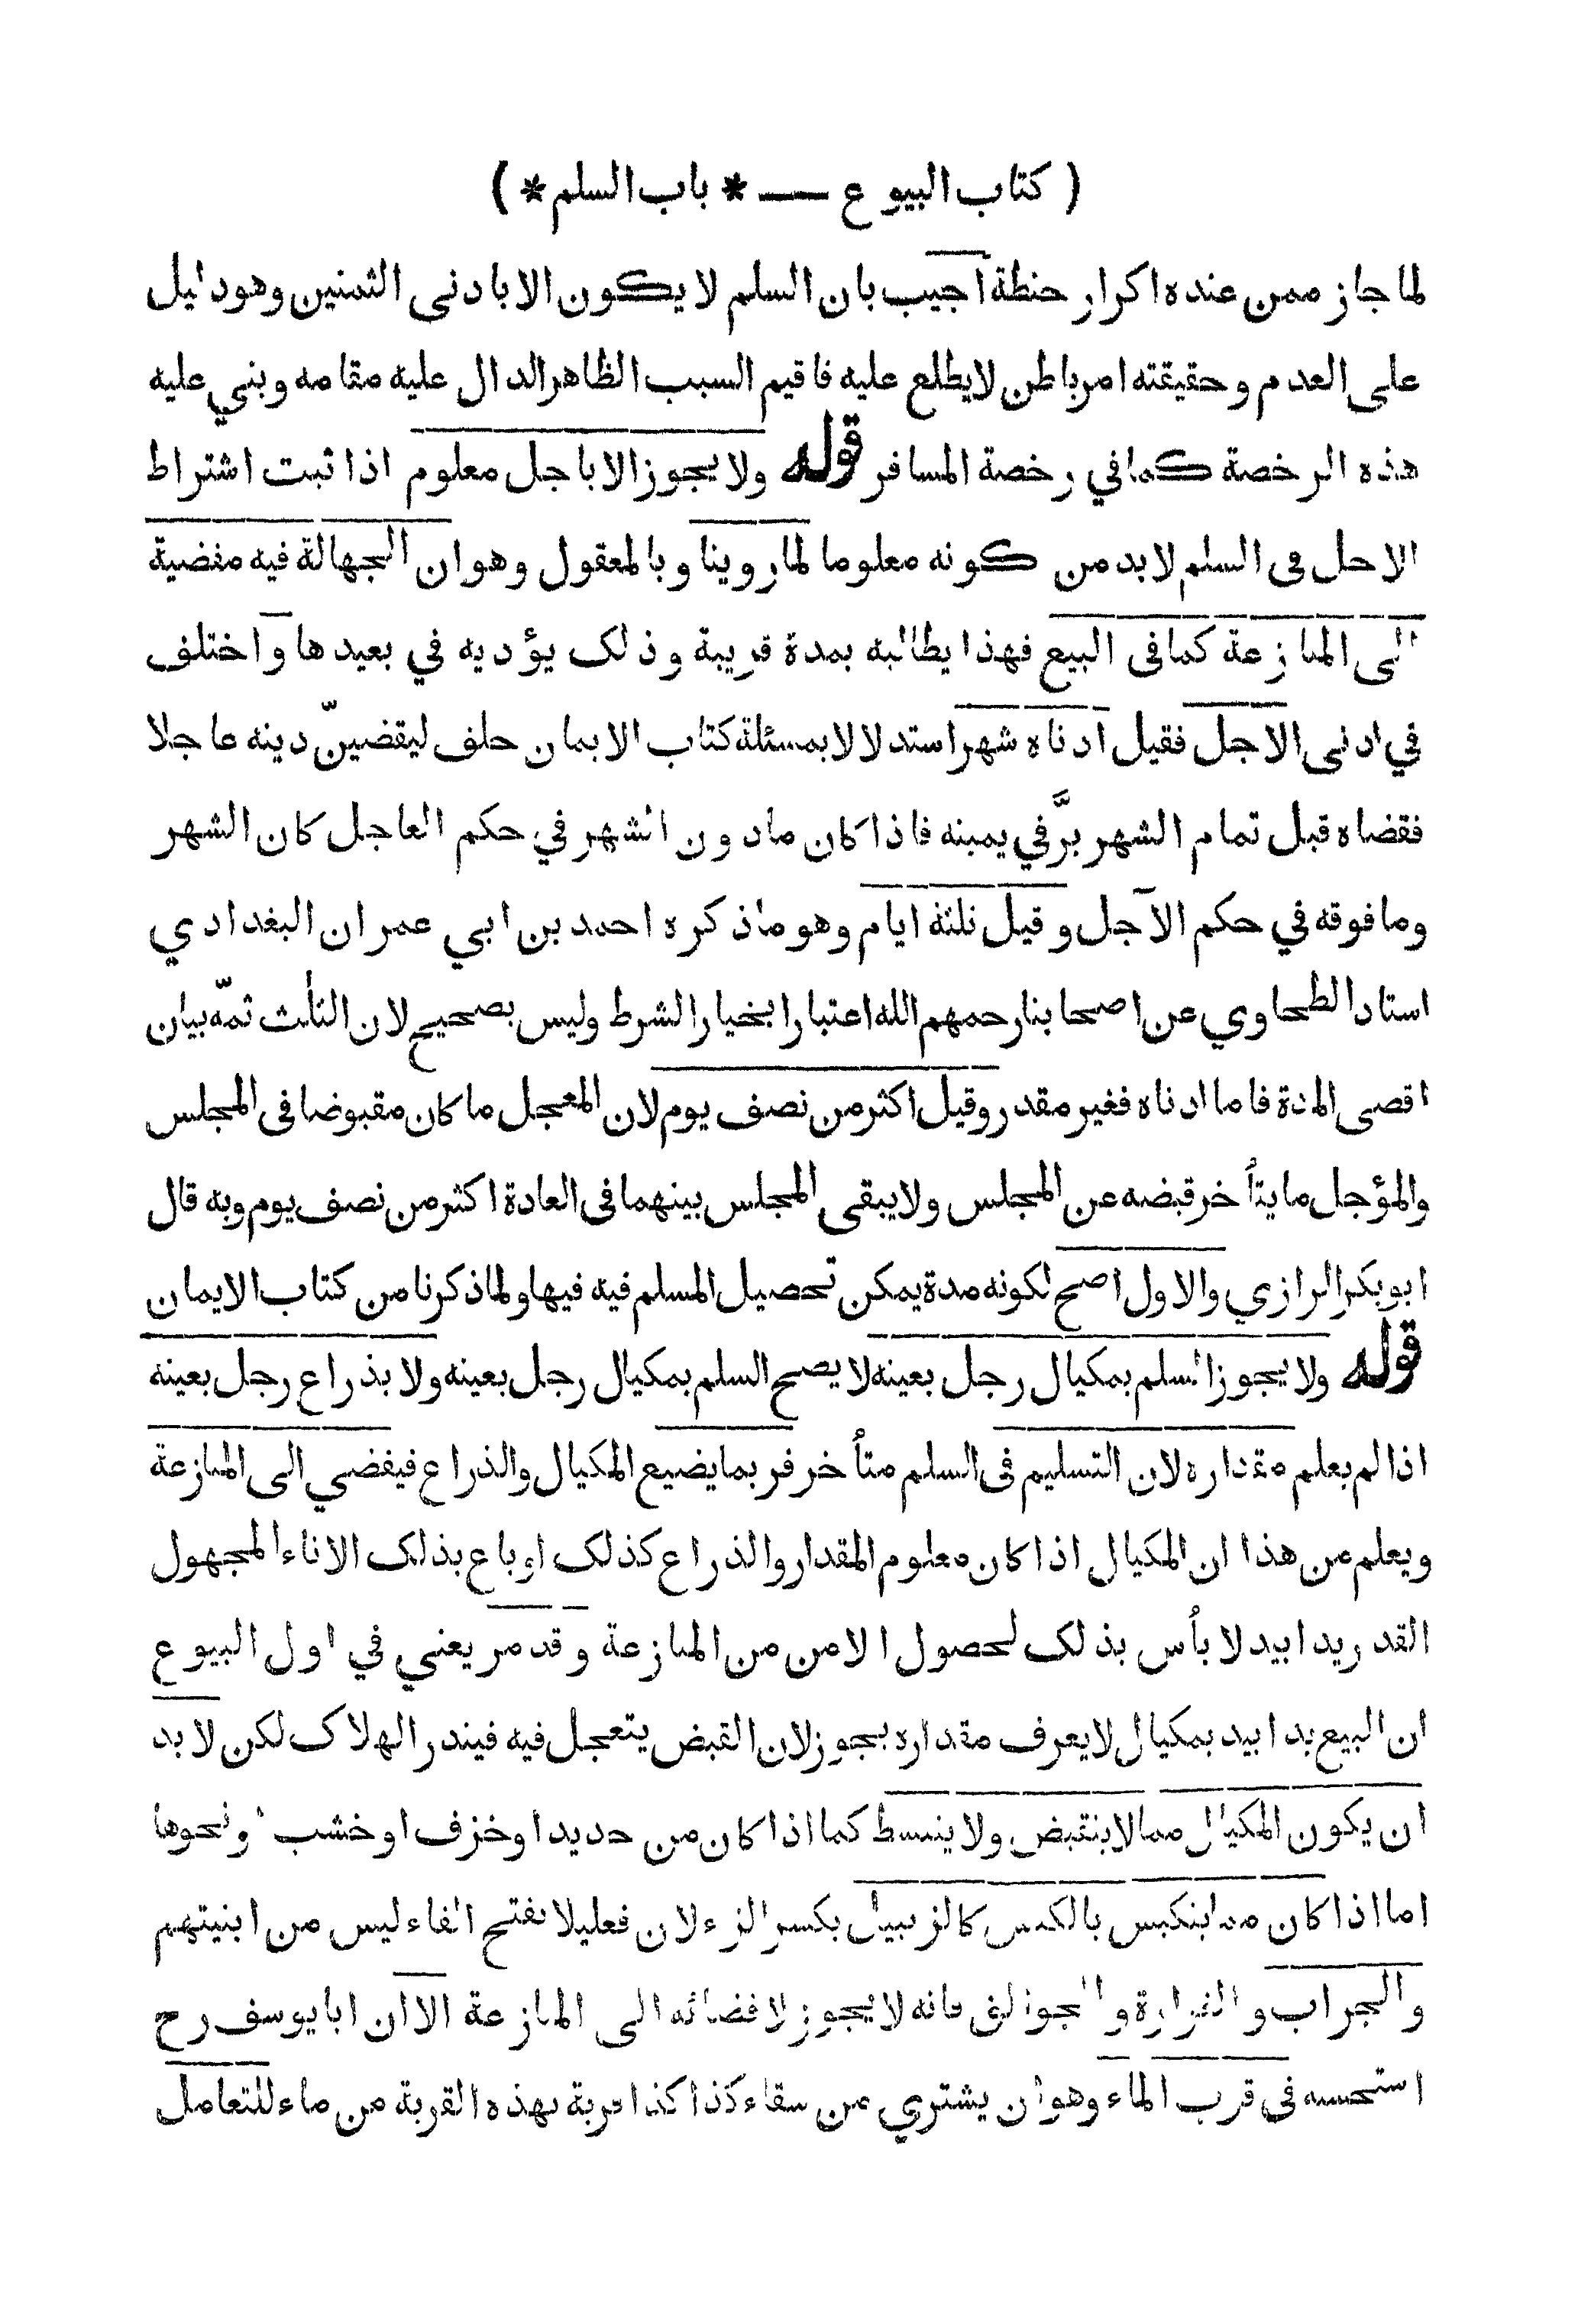 ( كتاب البيوع — * باب السلم * )
لما جاز ممن عنده اكرار حنطة اجيب بان السلم لا يكون الا بادنى الثمنين وهو دليل
على العدم وحقيقته امر باطن لا يطلع عليه فاقيم السبب الظاهر الدال عليه مقامه وبني عليه
هذه الرخصة كما في رخصة المسافر قوله ولا يجوز الا باجل معلوم اذا ثبت اشتراط
الاجل فى السلم لا بد من كونه معلوما لما روينا وبالمعقول وهو ان الجهالة فيه مفضية
الى المنازعة كما فى البيع فهذا يطالبه بمدة قريبة وذلك يؤديه في بعيدها واختلف
في ادنى الاجل فقيل ادناه شهر استدلالا بمسئلة كتاب الايمان حلف ليقضينّ دينه عاجلا
فقضاه قبل تمام الشهر برَّ في يمينه فاذا كان مادون الشهر في حكم العاجل كان الشهر
وما فوقه في حكم الآجل وقيل ثلثة ايام وهو ما ذكره احمد بن ابي عمران البغدادي
استاد الطحاوي عن اصحابنا رحمهم الله اعتبارا بخيار الشرط وليس بصحيح لان الثلث ثمّه بيان
اقصى المدة فاما ادناه فغير مقدر وقيل اكثر من نصف يوم لان المعجل ما كان مقبوضا فى المجلس
والمؤجل ما يتأخر قبضه عن المجلس ولا يبقى المجلس بينهما فى العادة اكثر من نصف يوم وبه قال
ابو بكر الرازي والاول اصح لكونه مدة يمكن تحصيل المسلم فيه فيها ولما ذكرنا من كتاب الايمان
قوله ولا يجوز السلم بمكيال رجل بعينه لا يصح السلم بمكيال رجل بعينه ولا بذراع رجل بعينه
اذا لم يعلم مقداره لان التسليم فى السلم متأخر فربما يضيع المكيال والذراع فيفضي الى المنازعة
ويعلم من هذا ان المكيال اذا كان معلوم المقدار والذراع كذلك او باع بذلك الاناء المجهول
القدر يدا بيد لا بأس بذلك لحصول الامن من المنازعة وقد مر يعني في اول البيوع
ان البيع يدا بيد بمكيال لا يعرف مقداره يجوز لان القبض يتعجل فيه فيندر الهلاك لكن لا بد
ان يكون المكيال مما لا ينقبض ولا ينبسط كما اذا كان من حديد او خزف او خشب ونحوها
اما اذا كان مما ينكبس بالكبس كالزنبيل بكسر الزاء لان فعليلا بفتح الفاء ليس من ابنيتهم
والجراب والغرارة والجوالق فانه لا يجوز لافضائه الى المنازعة الا ان ابا يوسف رح
استحسنه فى قرب الماء وهو ان يشتري من سقاء كذا كذا قربة بهذه القربة من ماء للتعامل